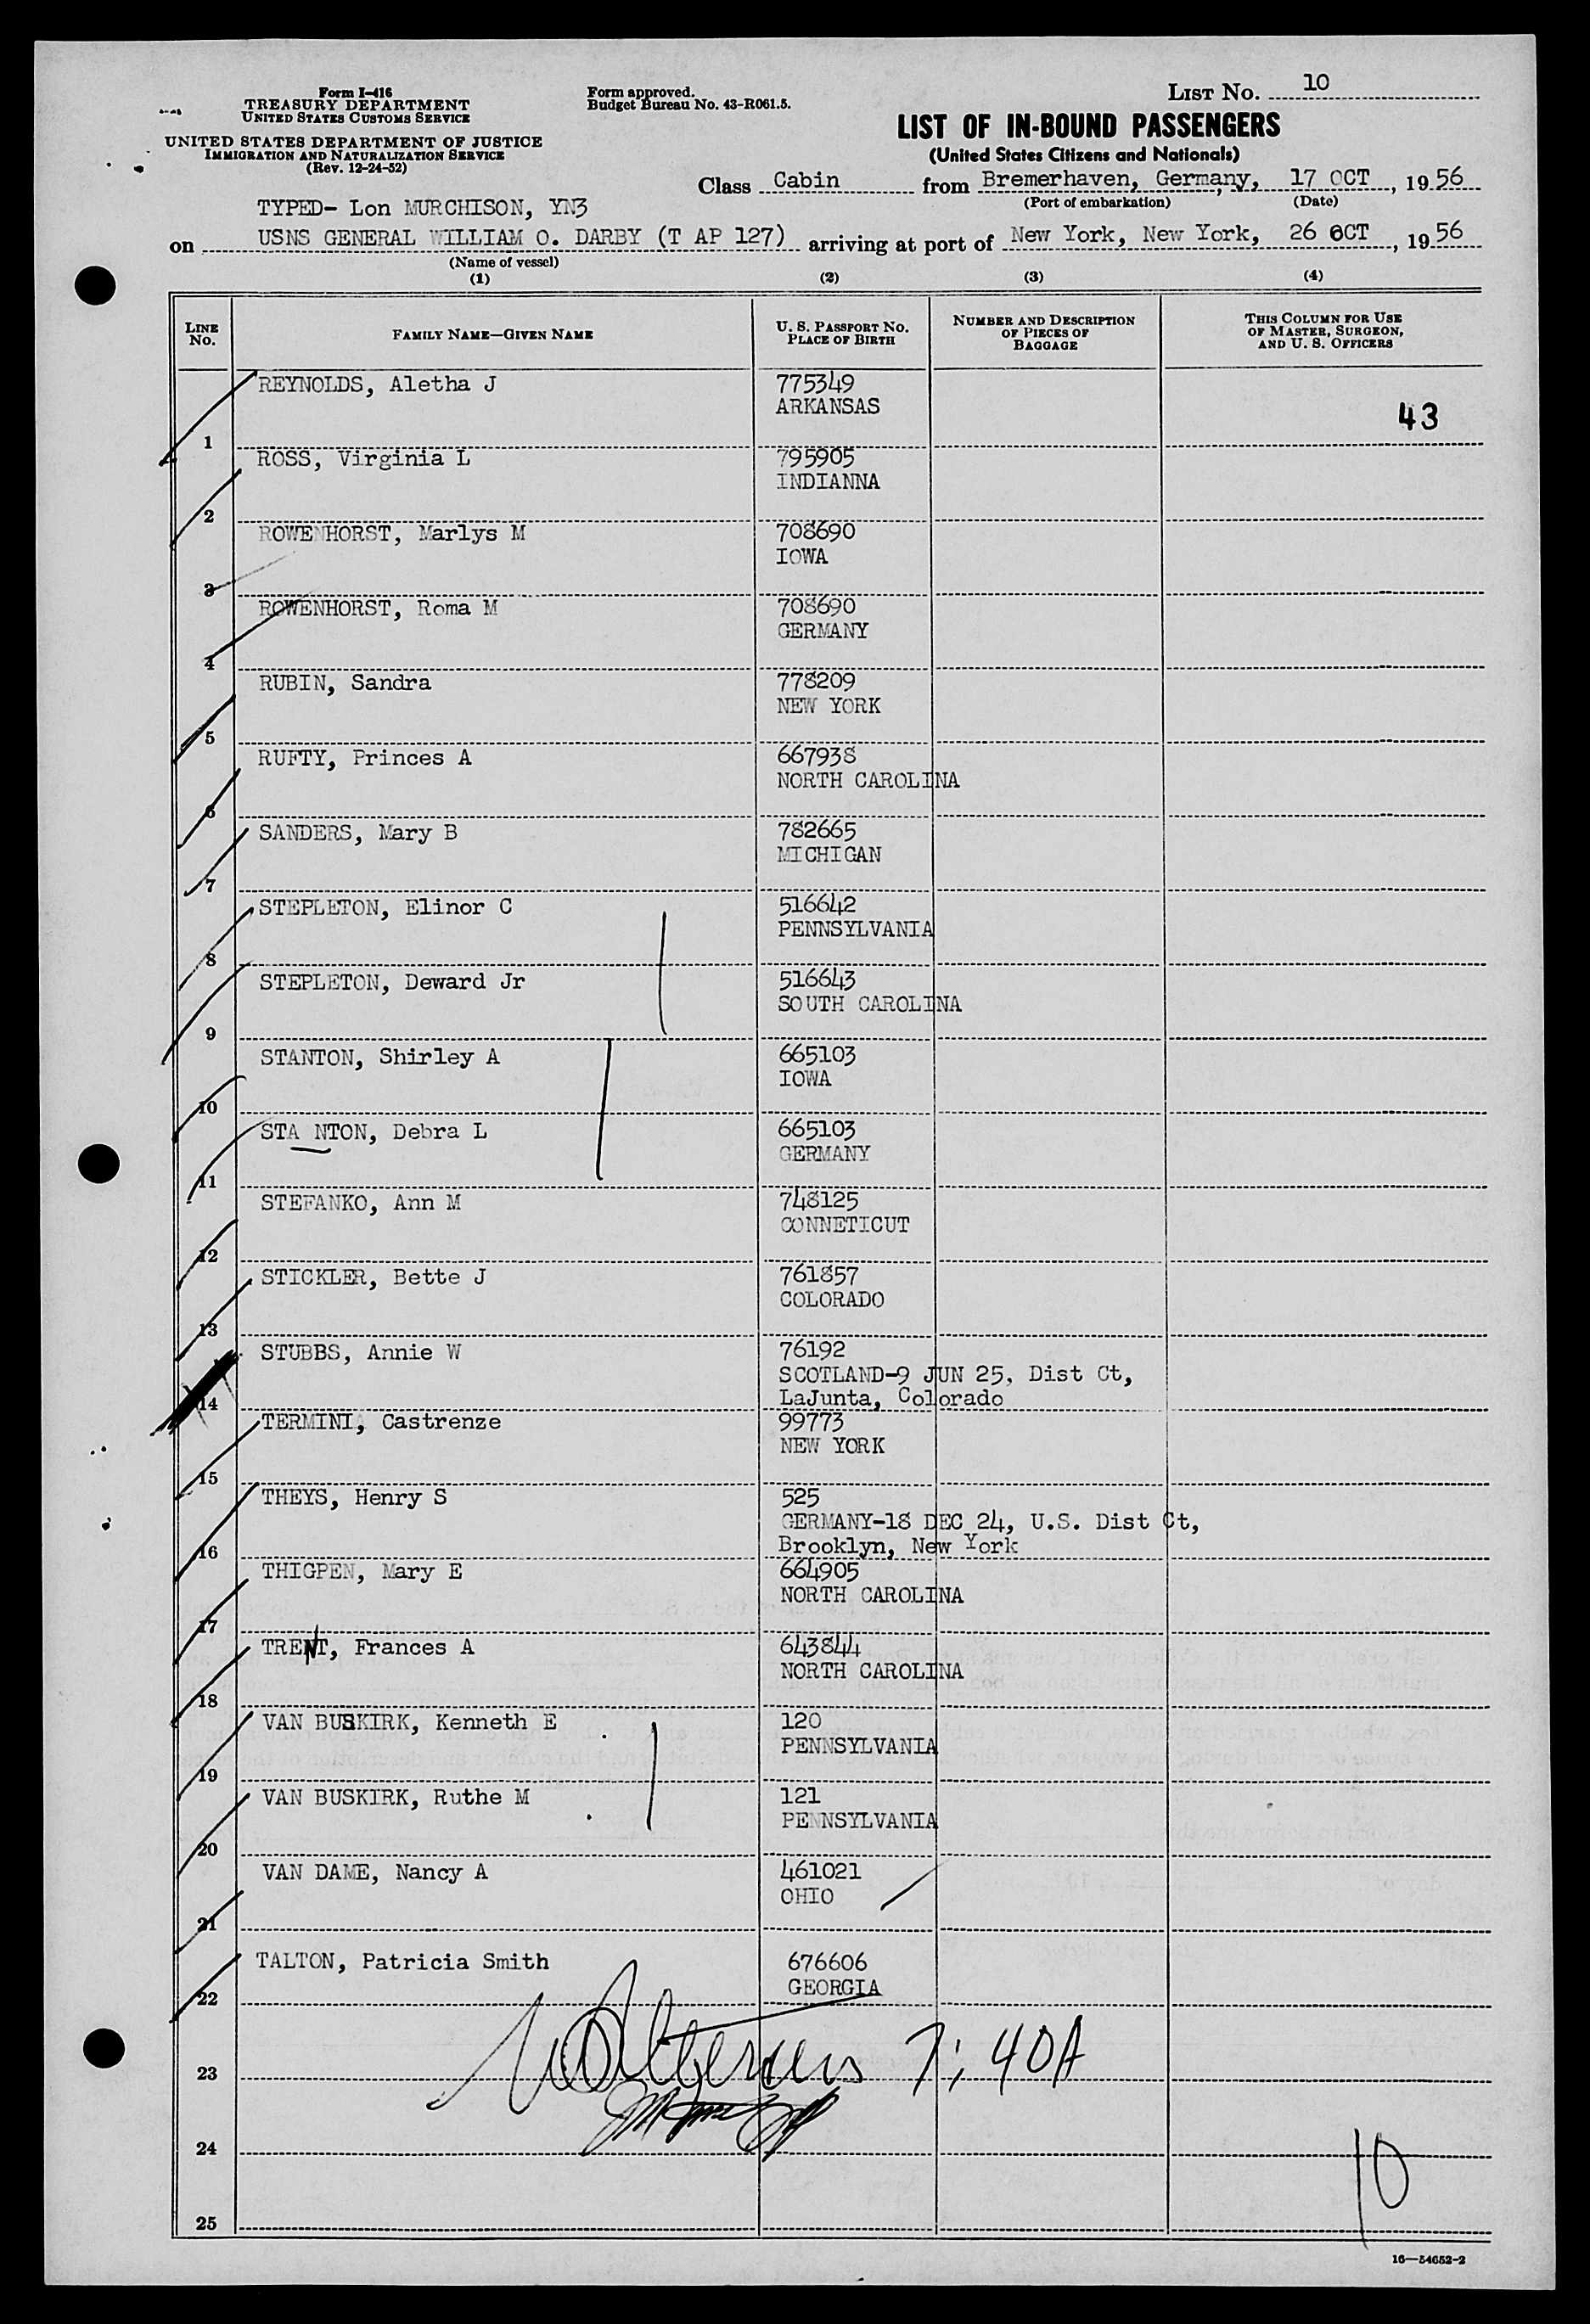 Form I-416
TREASURY DEPARTMENT
UNITED STATES CUSTOMS SERVICE
UNITED STATES DEPARTMENT OF JUSTICE
IMMIGRATION AND NATURALIZATION SERVICE
(Rev. 12-24-52)
Form approved.
Budget Bureau No. 43-R061.5.
LIST No. 10
LIST OF IN-BOUND PASSENGERS
(United States Citizens and Nationals)
Class Cabin from Bremerhaven, Germany, 17 OCT, 1956
(Port of embarkation) (Date)
TYPED- Lon MURCHISON, YN3
on USNS GENERAL WILLIAM O. DARBY (T AP 127) arriving at port of New York, New York, 26 OCT, 1956
(Name of vessel)
(1) (2) (3) (4)
LINE No. FAMILY NAME—GIVEN NAME U. S. PASSPORT NO. PLACE OF BIRTH NUMBER AND DESCRIPTION OF PIECES OF BAGGAGE THIS COLUMN FOR USE OF MASTER, SURGEON, AND U. S. OFFICERS
REYNOLDS, Aletha J 775349
ARKANSAS
43
1
ROSS, Virginia L 795905
INDIANNA
2
ROWENHORST, Marlys M 708690
IOWA
3
ROWENHORST, Roma M 708690
GERMANY
4
RUBIN, Sandra 778209
NEW YORK
5
RUFTY, Princes A 667938
NORTH CAROLINA
6
SANDERS, Mary B 782665
MICHIGAN
7
STEPLETON, Elinor C 516642
PENNSYLVANIA
8
STEPLETON, Deward Jr 516643
SOUTH CAROLINA
9
STANTON, Shirley A 665103
IOWA
10
STA NTON, Debra L 665103
GERMANY
11
STEFANKO, Ann M 748125
CONNETICUT
12
STICKLER, Bette J 761857
COLORADO
13
STUBBS, Annie W 76192
SCOTLAND-9 JUN 25, Dist Ct,
LaJunta, Colorado
14
TERMINI, Castrenze 99773
NEW YORK
15
THEYS, Henry S 525
GERMANY-18 DEC 24, U.S. Dist Ct,
Brooklyn, New York
16
THIGPEN, Mary E 664905
NORTH CAROLINA
17
TRENT, Frances A 643844
NORTH CAROLINA
18
VAN BUSKIRK, Kenneth E 120
PENNSYLVANIA
19
VAN BUSKIRK, Ruthe M 121
PENNSYLVANIA
20
VAN DAME, Nancy A 461021
OHIO
21
TALTON, Patricia Smith 676606
GEORGIA
22
7:40A
23
24
10
25
16—54652-2